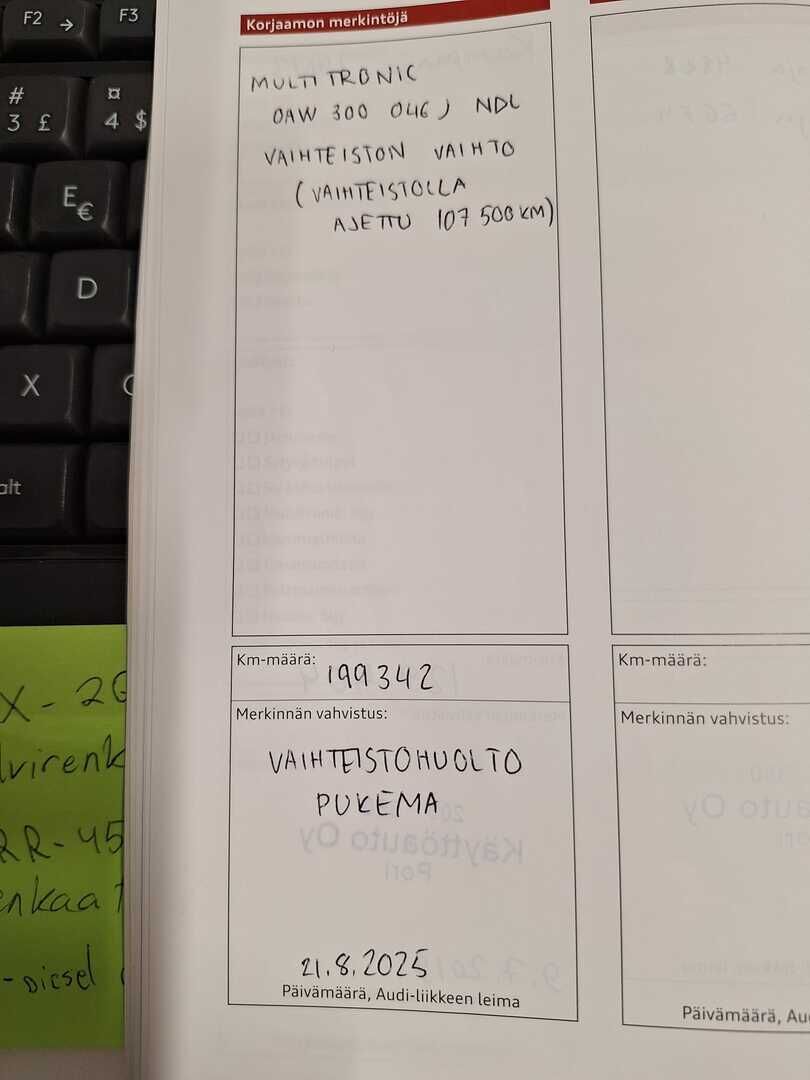 F2 →
F3
#
3 £
¤
4 $
E
€
D
X
alt
Korjaamon merkintöjä
MULTITRONIC
0AW 300 046J NDL
VAIHTEISTON VAIHTO
(VAIHTEISTOLLA
AJETTU 107 500 KM)
Km-määrä: 199342
Merkinnän vahvistus:
VAIHTEISTOHUOLTO
PUKEMA
21.8.2025
Päivämäärä, Audi-liikkeen leima
Km-määrä:
Merkinnän vahvistus:
Päivämäärä, Au
X - 20
lvirenk
RR-45
enkaat
-DIESEL